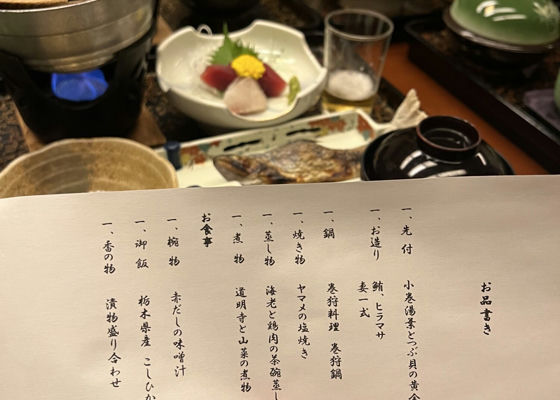 お品書き
一、先付 小巻湯葉とつぶ貝の黄金
一、お造り 鮪、ヒラマサ
妻一式
一、鍋 巻狩料理 巻狩鍋
一、焼き物 ヤマメの塩焼き
一、蒸し物 海老と鶏肉の茶碗蒸し
一、煮物 道明寺と山菜の煮物
お食事
一、椀物 赤だしの味噌汁
一、御飯 栃木県産 こしひか
一、香の物 漬物盛り合わせ